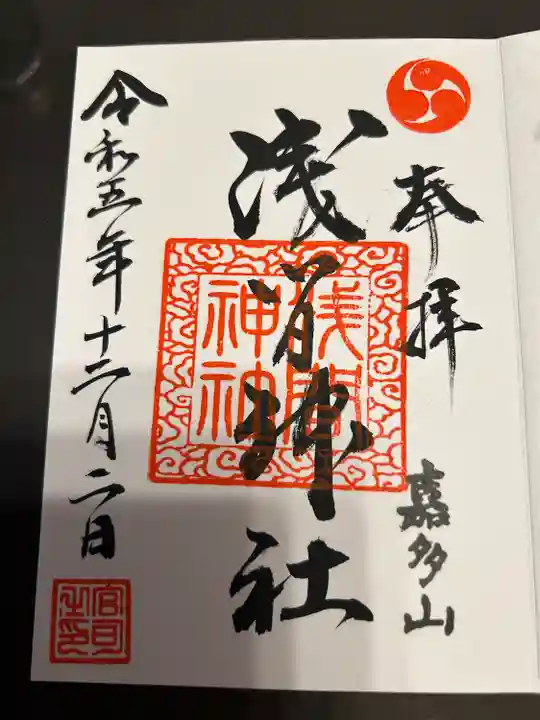 奉拝
嘉多山
浅間神社
浅間
神社
令和五年十二月二日
宮司
之印